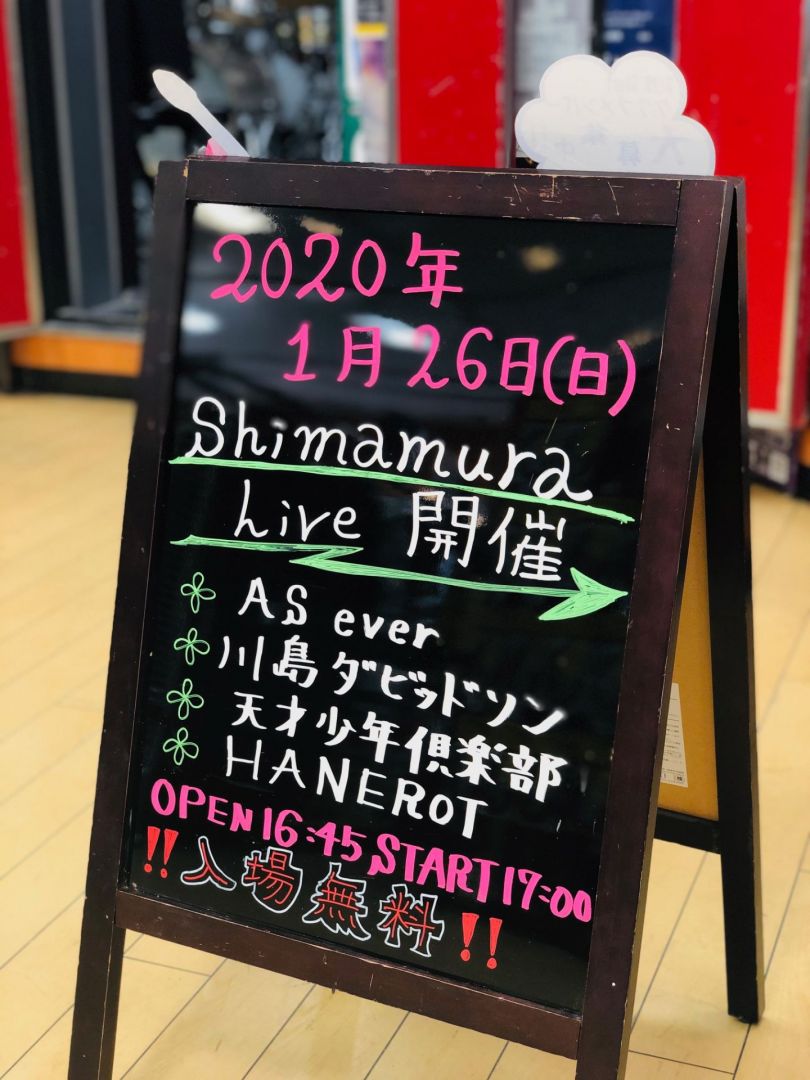 2020年
1月26日(日)
Shimamura
Live 開催
AS ever
川島ダビッドソン
天才少年倶楽部
HANEROT
OPEN16:45 START17:00
!!入場無料!!